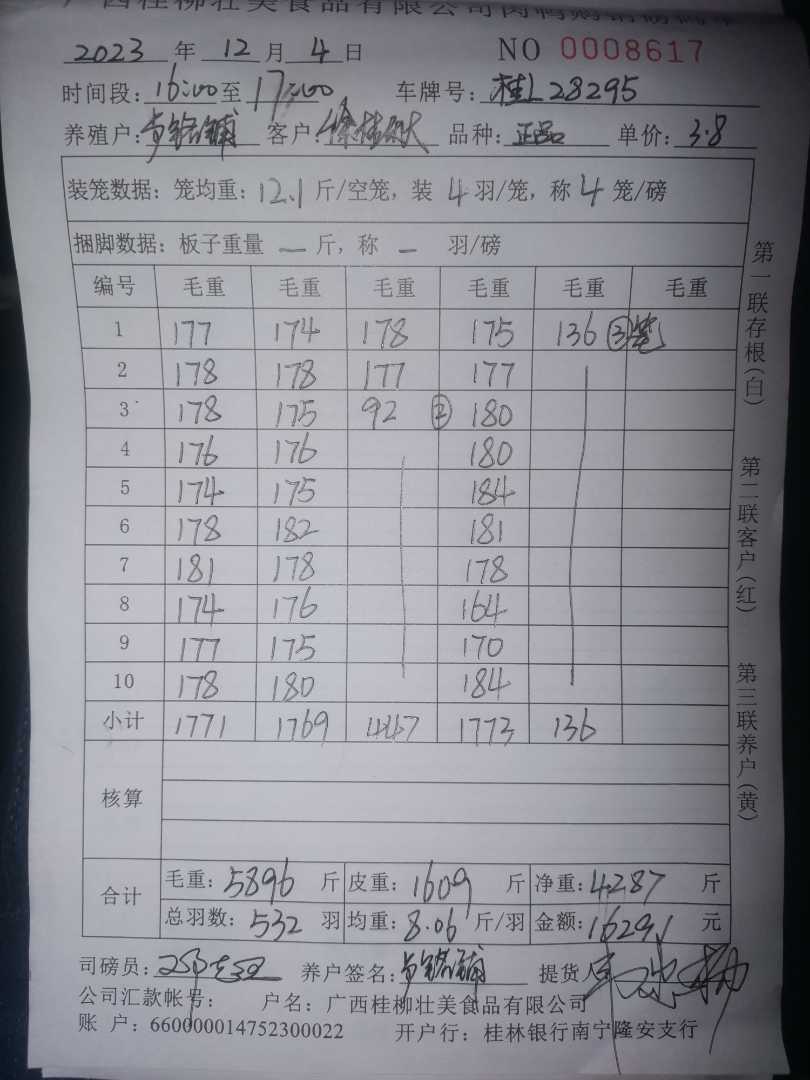 广西桂柳壮美食品有限公司
2023 年 12 月 4 日 NO 0008617
时间段: 16:00 至 17:00 车牌号: 桂L28295
养殖户: 客户: 品种: 正品 单价: 3.8
装笼数据: 笼均重: 12.1 斤/空笼, 装 4 羽/笼, 称 4 笼/磅
捆脚数据: 板子重量 — 斤, 称 — 羽/磅
编号 毛重 毛重 毛重 毛重 毛重 毛重
1 177 174 178 175 136 ③笼
2 178 178 177 177
3 178 175 92 ② 180
4 176 176 180
5 174 175 184
6 178 182 181
7 181 178 178
8 174 176 164
9 177 175 170
10 178 180 184
小计 1771 1769 447 1773 136
核算
合计 毛重: 5896 斤 皮重: 1609 斤 净重: 4287 斤
总羽数: 532 羽 均重: 8.06 斤/羽 金额: 16291 元
司磅员: 养户签名: 提货
公司汇款帐号: 户名: 广西桂柳壮美食品有限公司
账 户: 660000014752300022 开户行: 桂林银行南宁隆安支行
第一联存根(白)
第二联客户(红)
第三联养户(黄)